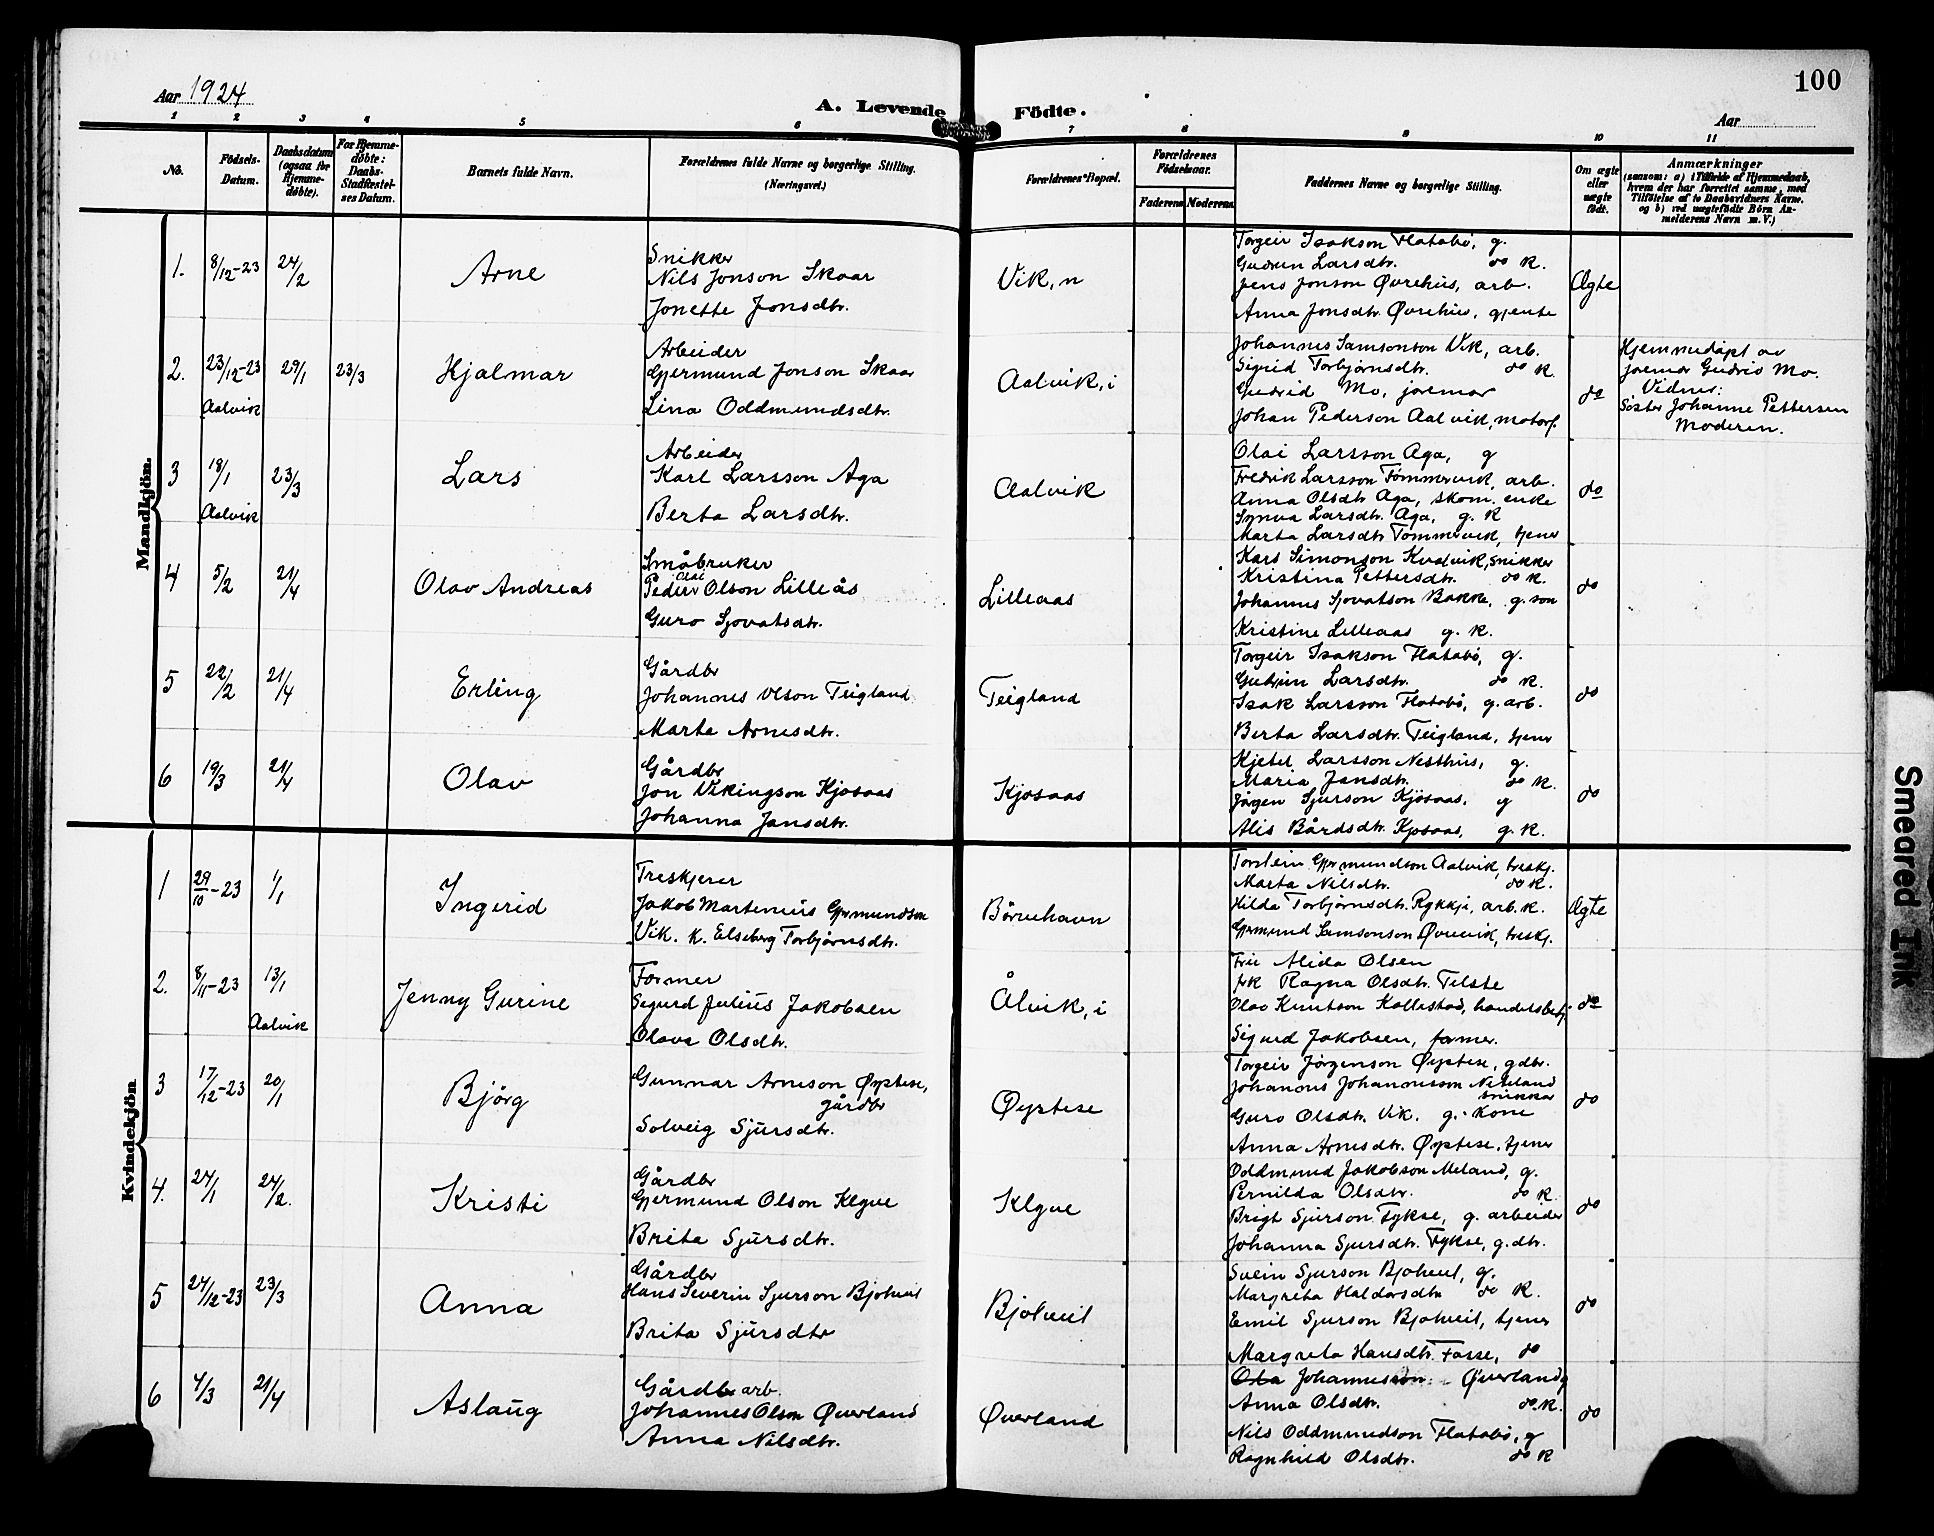 100
Aar 1924
A. Levende Födte.
Aar
1 2 3 4 5 6 7 8 9 10 11
No.
Födsels-Datum.
Daabsdatum (ogsaa for Hjemme-døbte).
For Hjemme-døbte: Daabs-Stadfæstel-ses Datum.
Barnets fulde Navn.
Forældrenes fulde Navne og borgerlige Stilling.
(Næringsvei.)
Forældrenes Bopæl.
Forældrenes Födselsaar.
Faderens
Moderens
Faddernes Navne og borgerlige Stilling.
Om ægte eller uægte født.
Anmærkninger
(saasom: a) i Tilfælde af Hjemmedaab,
hvem der har forrettet samme, med
Tilføielse af to Daabsvidners Navne,
og b) ved uægtefødte Börn An-
melderens Navn m. V.)
Mandkjön.
1. 8/12-23 24/2 Arne
Snikker
Nils Jonson Skaar
Jonette Jonsdtr.
Vik, n
Torgeir Isakson Flatabø, g.
Gudrun Larsdtr. do K.
Jens Jonson Øvrehus, arb.
Anna Jonsdtr. Øvrehus, gjente
Ægte
2. 23/12-23 29/1 23/3 Hjalmar
Aalvik
Arbeider
Gjermund Jonson Skaar
Lina Oddmundsdtr.
Aalvik, i
Johannes Samsonson Vik, arb.
Sigrid Torbjørnsdtr. do K.
Gudrid Mo, jormor
Johan Pederson Aalvik, motorf.
do
Hjemmedøpt av
jormor Gudrid Mo.
Vidner:
Søster Johanne Pettersen
Moderen.
3 18/1 23/3 Lars
Aalvik
Arbeider
Karl Larsson Aga
Berta Larsdtr.
Aalvik
Olai Larsson Aga, g
Fredrik Larsson Tømmervik, arb.
Anna Olsdtr Aga, skom. enke
Synva Larsdtr. Aga, g. K
Marta Larsdtr Tømmervik, tjener
do
4 5/2 21/4 Olav Andreas
Småbruker
Olai
Peder Olson Lilleås
Guro Sjovatsdtr.
Lilleaas
Lars Simonson Kvalvik, snikker
Kristina Pettersdtr. do K.
Johannes Sjovatson Bakke, g. son
Kristine Lilleaas g. K.
do
5 22/2 21/4 Erling
Gårdbr
Johannes Olson Teigland
Marta Arnesdtr.
Teigland
Torgeir Isakson Flatabø, g.
Gudrun Larsdtr. do K.
Isak Larsson Flatabø, g. arb.
Berta Larsdtr. Teigland, tjener
do
6 19/3 21/4 Olav
Gårdbr
Jon Vikingson Kjosaas
Johanna Jansdtr.
Kjosaas
Kjetel Larsson Nesthus, g.
Maria Jansdtr. do K.
Jörgen Sjurson Kjosaas, g
Alis Bårdsdtr. Kjosaas, g. K.
do
Kvindekjön
1 29/10-23 1/1 Ingerid
Treskjerer
Jakob Martenius Gjermundson
Vik. K. Elseberg Torbjørnsdtr.
Børvehavn
Torstein Gjermundson Aalvik, treskj.
Marta Nilsdtr. do K.
Hilda Torbjørnsdtr. Rykkje, arb. K.
Gjermund Samsonson Øvrevik, treskj.
Ægte
2. 8/11-23 13/1 Jenny Gurine
Aalvik
Former
Sigurd Julius Jakobsen
Olava Olsdtr.
Ålvik, i
Fru Alida Olsen
frk Ragna Olsdtr. Tilste
Olav Knutson Kallestad, handelsbetj.
Sigurd Jakobsen, former.
do
3 17/12-23 20/1 Bjørg
Gunnar Arneson Øystese,
gårdbr
Solveig Sjursdtr.
Øystese
Torgeir Jørgenson Øystese, gdbr.
Johannes Johannesson Neteland
snikkar
Guro Olsdtr. Vik. g. Kone
Anna Arnesdtr. Øystese, tjener
do
4. 24/1 24/2. Kristi
Gårdbr
Gjermund Olson Klyve
Brita Sjursdtr.
Klyve
Oddmund Jakobson Meland, g.
Pernilda Olsdtr. do K
Brigt Sjurson Fykse, g. arbeider
Johanna Sjursdtr. Fykse, g. dtr.
do
5 27/12-23 23/3 Anna
Gårdbr
Hans Severin Sjurson Bjotveit
Brita Sjursdtr
Bjotveit
Svein Sjurson Bjotveit, g.
Margreta Haldorsdtr do K.
Emil Sjurson Bjotveit, tjener
Margreta Hansdtr. Fosse, do
do
6 4/3 21/4 Aslaug
Gårdbr arb.
Johannes Olson Øverland
Anna Nilsdtr.
Øverland
Ola Johannesson Øverland g
Anna Olsdtr. do. K.
Nils Oddmundson Flatabø, g
Ragnhild Olsdtr. do K
do
Smeared Ink